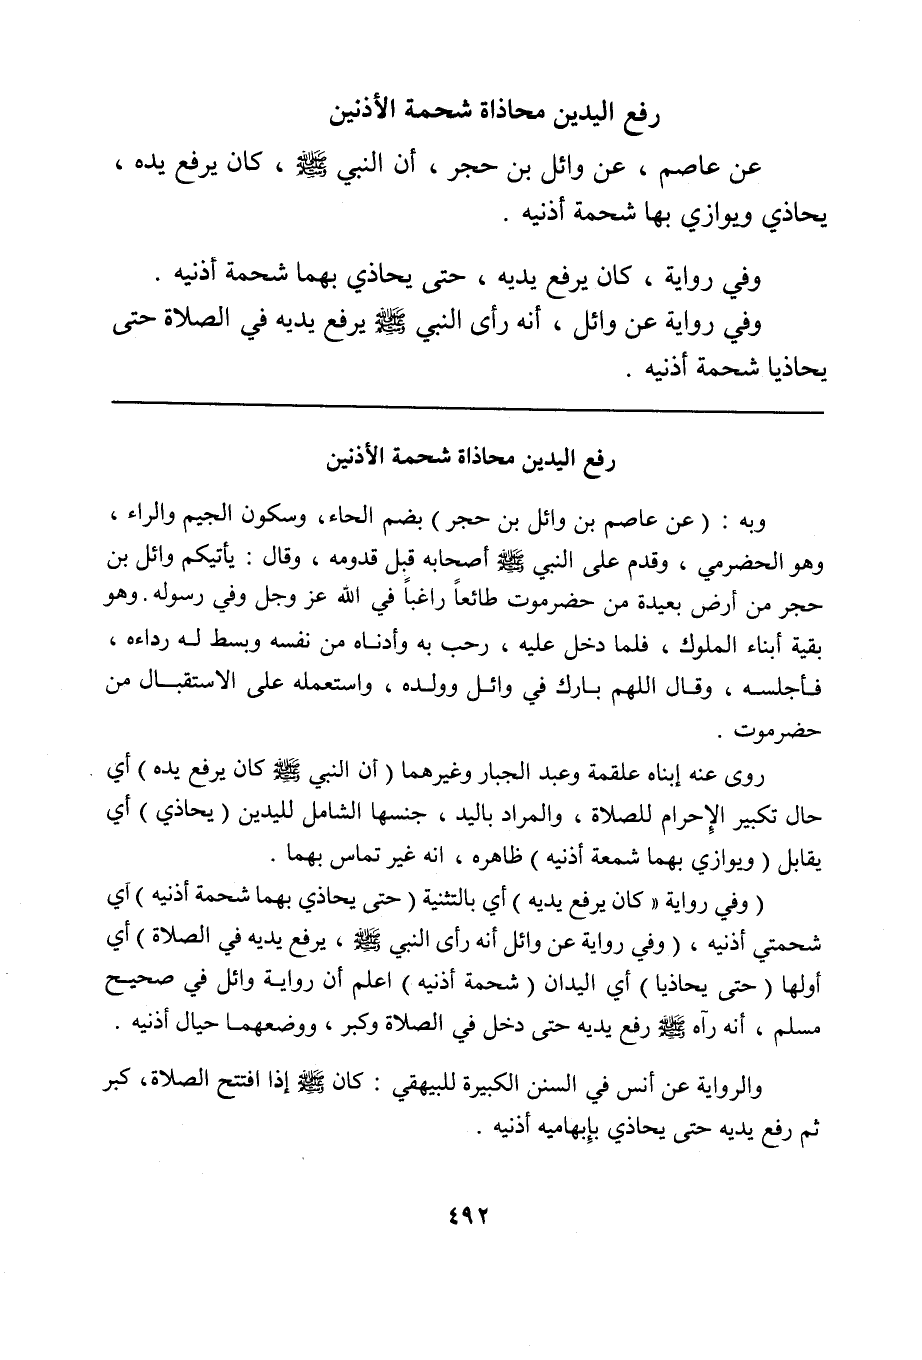 رفع اليدين محاذاة شحمة الأذنين
عن عاصم ، عن وائل بن حجر ، أن النبي ﷺ ، كان يرفع يده ،
يحاذي ويوازي بها شحمة أذنيه .
وفي رواية ، كان يرفع يديه ، حتى يحاذي بهما شحمة أذنيه .
وفي رواية عن وائل ، أنه رأى النبي ﷺ يرفع يديه في الصلاة حتى
يحاذيا شحمة أذنيه .
رفع اليدين محاذاة شحمة الأذنين
وبه : ( عن عاصم بن وائل بن حجر ) بضم الحاء، وسكون الجيم والراء ،
وهو الحضرمي ، وقدم على النبي ﷺ أصحابه قبل قدومه ، وقال : يأتيكم وائل بن
حجر من أرض بعيدة من حضرموت طائعاً راغباً في الله عز وجل وفي رسوله . وهو
بقية أبناء الملوك ، فلما دخل عليه ، رحب به وأدناه من نفسه وبسط له رداءه ،
فأجلسه ، وقال اللهم بارك في وائل وولده ، واستعمله على الاستقبال من
حضرموت .
روى عنه إبناه علقمة وعبد الجبار وغيرهما ( أن النبي ﷺ كان يرفع يده ) أي
حال تكبير الإحرام للصلاة ، والمراد باليد ، جنسها الشامل لليدين ( يحاذي ) أي
يقابل ( ويوازي بهما شمعة أذنيه ) ظاهره ، انه غير تماس بهما .
( وفي رواية « كان يرفع يديه ) أي بالتثنية ( حتى يحاذي بهما شحمة أذنيه ) أي
شحمتي أذنيه ، ( وفي رواية عن وائل أنه رأى النبي ﷺ ، يرفع يديه في الصلاة ) أي
أولها ( حتى يحاذيا ) أي اليدان ( شحمة أذنيه ) اعلم أن رواية وائل في صحيح
مسلم ، أنه رآه ﷺ رفع يديه حتى دخل في الصلاة وكبر ، ووضعهما حيال أذنيه .
والرواية عن أنس في السنن الكبيرة للبيهقي : كان ﷺ إذا افتتح الصلاة، كبر
ثم رفع يديه حتى يحاذي بإبهاميه أذنيه .
٤٩٢